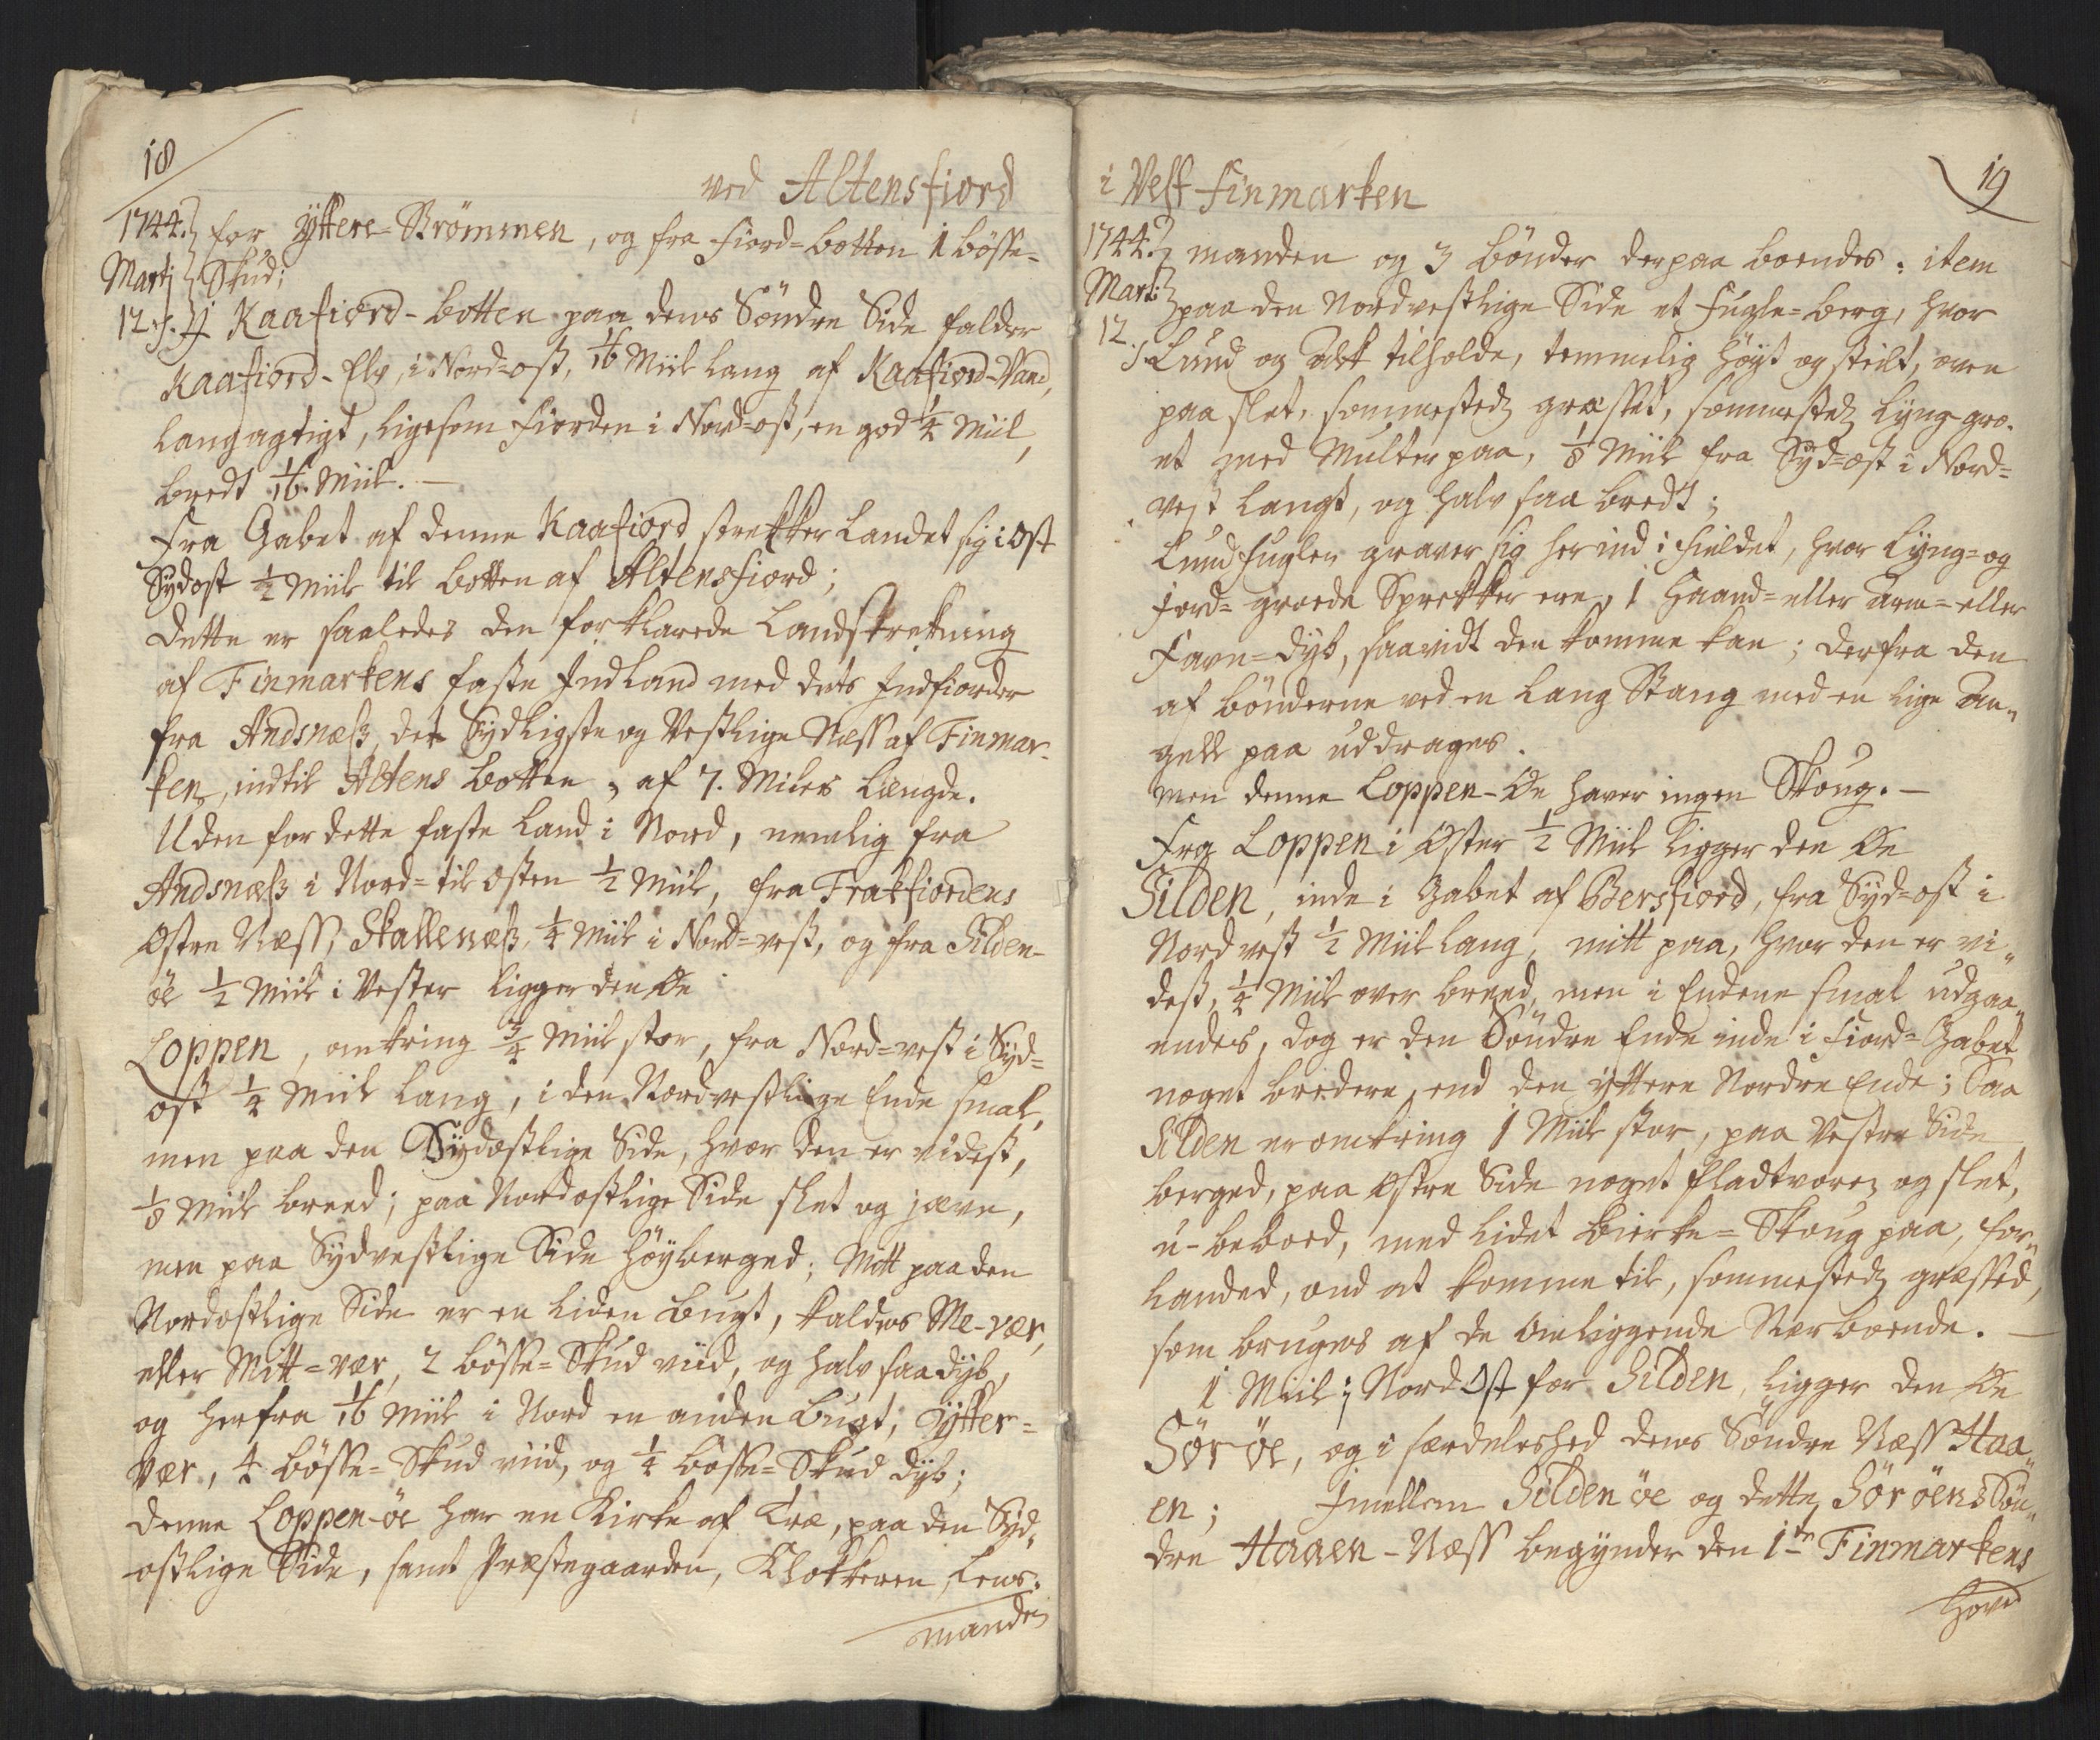 18
ved Altensfiord
1744. for Yttere-Strømmen, og fra Fiord-Botten 1 bøsse-
Martj Skud;
12. J Kaafiord-botten paa dens Søndre Side falder
Kaafiord-Elv, i Nord-ost, 1/16 Miil lang af Kaafiord-Vand,
langagtigt, ligesom Fiorden i Nord-ost, en god 1/4 Miil,
bredt 1/16. Miil. —
Fra Gabet af denne Kaafiord strekker Landet sig i Ost
Sydost 1/2 Miil til Botten af Altensfiord;
Dette er saaledes den forklarede Landstrekning
af Finmarkens faste Indland med dets Indfiorder
fra Andsnæss, det Sydligste og Vestlige Næss af Finmar-
ken, indtil Altens Botten, af 7. Miles Længde.
Uden for dette faste Land i Nord, nemlig fra
Andsnæss i Nord-til Osten 1/2 Miil, fra Frakfiordens
Ostre Næss, Skallenæss, 1/4 Miil i Nord-vest, og fra Silden-
öe 1/2 Miil i Vester ligger den Øe
Loppen, omkring 3/4 Miil stor, fra Nord-vest i Syd-
ost 1/4 Miil lang, i den Nordvestlige Ende smal,
men paa den Sydostlige Side, hvor den er videst,
1/8 Miil breed; paa Nordostlige Side slet og jævn,
men paa Sydvestlige Side høyberged; Mitt paa den
Nordostlige Side er en liden Bugt, kaldes Me-vær,
eller Mitt-vær, 2 bøsse-Skud viid, og halv saa dyb,
og herfra 1/16 Miil i Nord en anden Bugt, Ytter-
vær, 4 bøsse-Skud viid, og 1/4 bøsse-Skud dyb;
Denne Loppen-öe har en Kirke af Træ, paa den Syd-
ostlige Side, samt Præstegaarden, Klokkeren, Lens-
manden
19
i Vest-Finmarken
1744. manden og 3 bønder derpaa boendes; item
Martj paa den Nordvestlige Side et Fugle-berg, hvor
12. Lund og Alk tilholde, temmelig høyt og steilt, oven
paa slet, sommesteds græsset, sommesteds Lyng-gro-
et med Multer paa, 1/8 Miil fra Syd-ost i Nord-
vest langt, og halv saa bredt;
Lundfuglen graver sig her ind i Fieldet, hvor Lyng- og
Jord-groede Sprekker ere, 1 Haand- eller Arm- eller
Favn-dyb, saavidt den komme kan; derfra den
af bønderne ved en lang Stang med en lige An-
gell paa uddrages.
men denne Loppen-Øe haver ingen Skoug. —
Fra Loppen i Øster 1/2 Miil ligger den Øe
Silden, inde i Gabet af Bersfiord, fra Syd-ost i
Nordvest 1/2 Miil lang, mitt paa, hvor den er vi-
dest, 1/4 Miil over breed, men i Endene smal udgaa-
endes, dog er den Søndre Ende inde i Fiord-Gabet
noget bredere, end den yttere Nordre Ende; Saa
Silden er omkring 1 Miil stor, paa Vestre Side
berged, paa Østre Side noget fladtvoren og slet,
u-beboed, med lidet Bierke-Skoug paa, for-
landed, ond at komme til, sommesteds græssed,
som bruges af de omliggende Nærboende. —
1 Miil i Nord Ost for Silden, ligger den Øe
Sör öe, og i særdeleshed dens Søndre Næss Haa-
en; Imellem Silden öe og dette Sör öens Søn-
dre Haaen-Næss begynder den 1te Finmarkens
Hoved